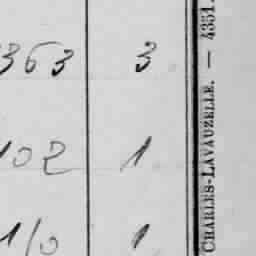 363 3
102 1
110 1
CHARLES-LAVAUZELLE. — 4351.